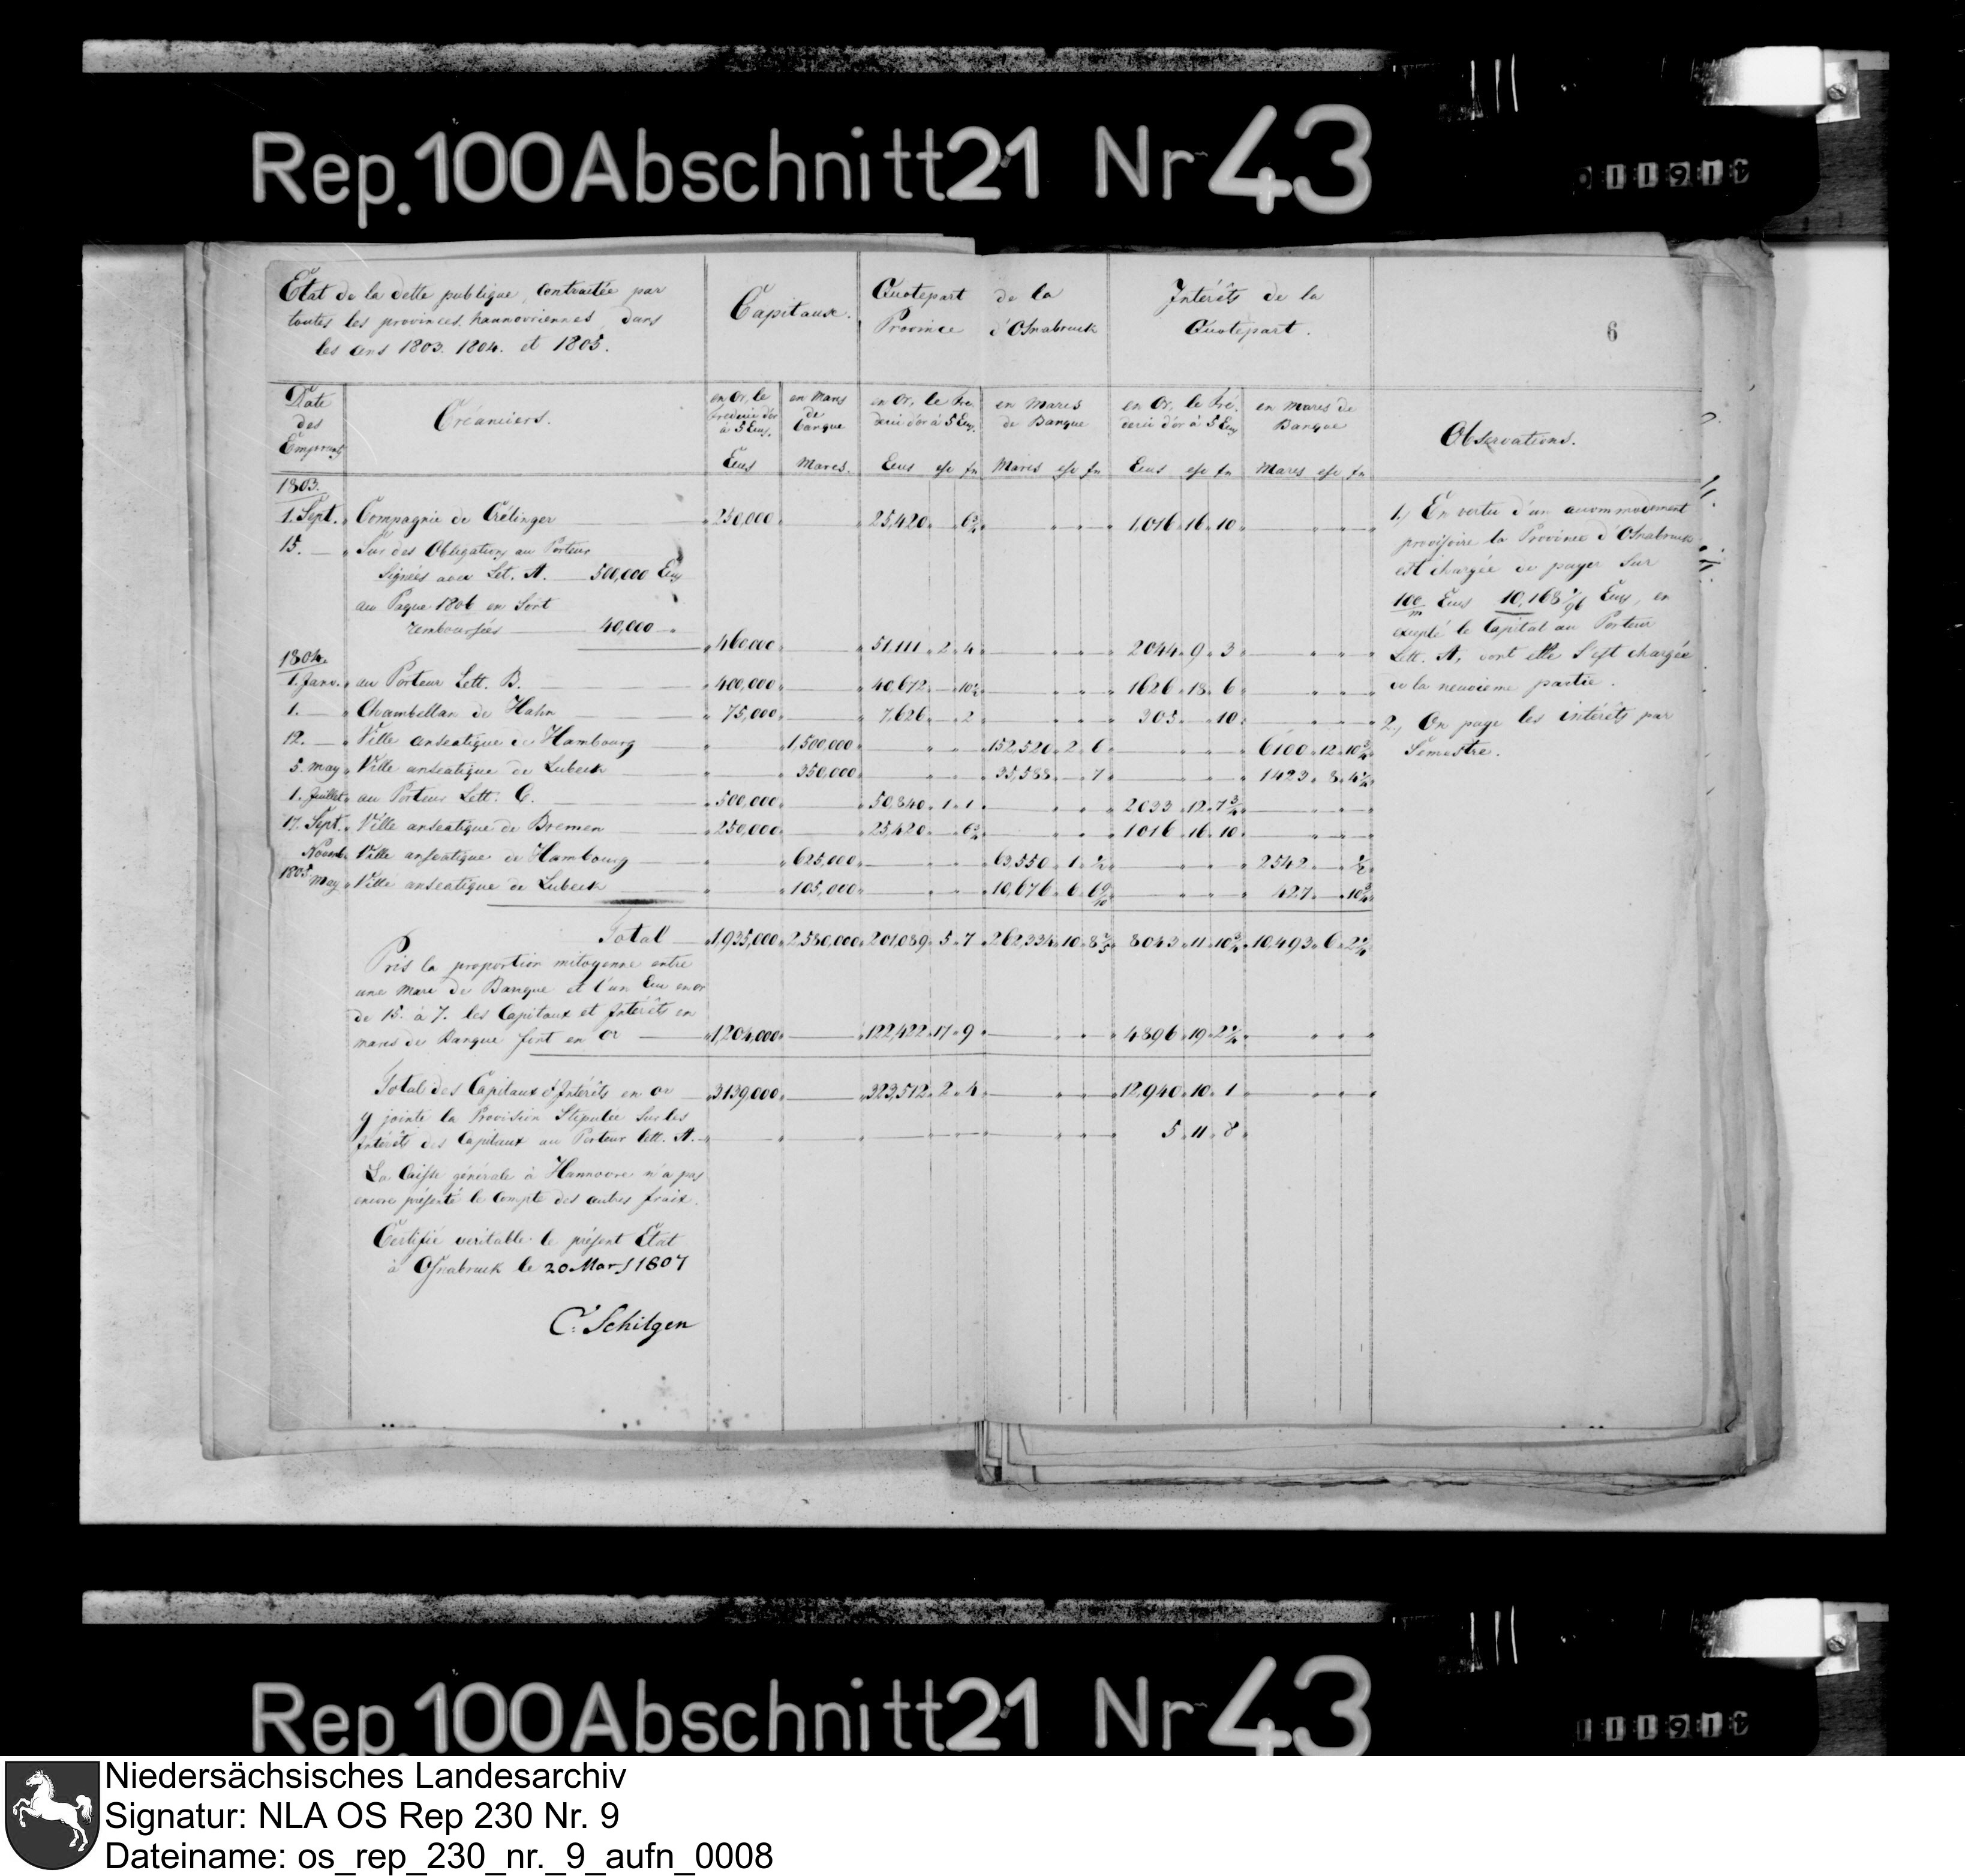 Rep. 100 Abschnitt 21 Nr 43
Etat de la dette publique, contractée par
toutes les provinces hannovriennes, dans
les ans 1803. 1804. et 1805.
Capitaux.
Quotepart de la
Province d'Osnabruck
Intérêts de la
Quotepart.
6
Date
des
Créanciers.
en Or, le
à 5 Ecus.
Ecus
en Marcs
de
banque
Marcs.
en Or, le Fre-
deric d'or à 5 Ecus.
Ecus
en Marcs
de Banque
Marcs
en Or, le Fré-
deric d'or à 5 Ecus
Ecus
en Marcs de
Banque
Marcs
Observations.
1803.
1. Sept. Compagnie de Crélinger 250,000 25,420 1,016 16 10
15. Sur des Obligations au Porteur
Signées avec Let. A. 500,000 Ecus
au Paque 1806 en Sont
remboursées 40,000
460,000 51,111 2 4 2044 9 3
1804.
1. Janv. au Porteur Lett. B. 400,000 40,672 1626 18 6
1. Chambellan de Hahn 75,000 7,626 2 305 10
12. Ville anseatique de Hambourg 1,500,000 152,520 2 6 6100 12
5. May Ville anseatique de Lubeck 350,000 35,588 7 1423 8
1. Juillet au Porteur Lett. C. 500,000 50,840 1 1 2033 12
17. Sept. Ville anseatique de Bremen 250,000 25,420 1016 16 10
Ville anseatique de Hambourg 625,000 63,550 1 2542
1805 May Ville anseatique de Lubeck 105,000 10,676 6 427
Total 1,935,000 2,580,000 201,089 5 7 262,334 10 8043 11 10,493 6
Pris la proportion mitoyenne entre
une Marc de Banque et l'un Ecu en or
de 15. à 7. les Capitaux et Intérêts en
marcs de Banque font en or 1,204,000 122,422 17 9 4896 19
Total des Capitaux & Intérêts en or 3139,000 323,512 2 4 12,940 10 1
y jointe la Provision Stipulée Sur les
Intérêts des Capitaux au Porteur lett. A. 5 11 8
La Caisse générale à Hannovre n'a pas
encore présenté le Compte des autres fraix.
Certifié veritable le présent Etat
à Osnabruck le 20 Mars 1807
C. Schilgen
1., En vertu d'un accommodement
provisoire la Province d'Osnabruck
est chargée de payer Sur
100/m Ecus 10,168 Ecus, en
excepté le Capital au Porteur
Lett. A, dont elle S'est chargée
de la neuvieme partie.
2., On paye les intérêts par
Semestre.
Rep. 100 Abschnitt 21 Nr 43
Niedersächsisches Landesarchiv
Signatur: NLA OS Rep 230 Nr. 9
Dateiname: os_rep_230_nr._9_aufn_0008